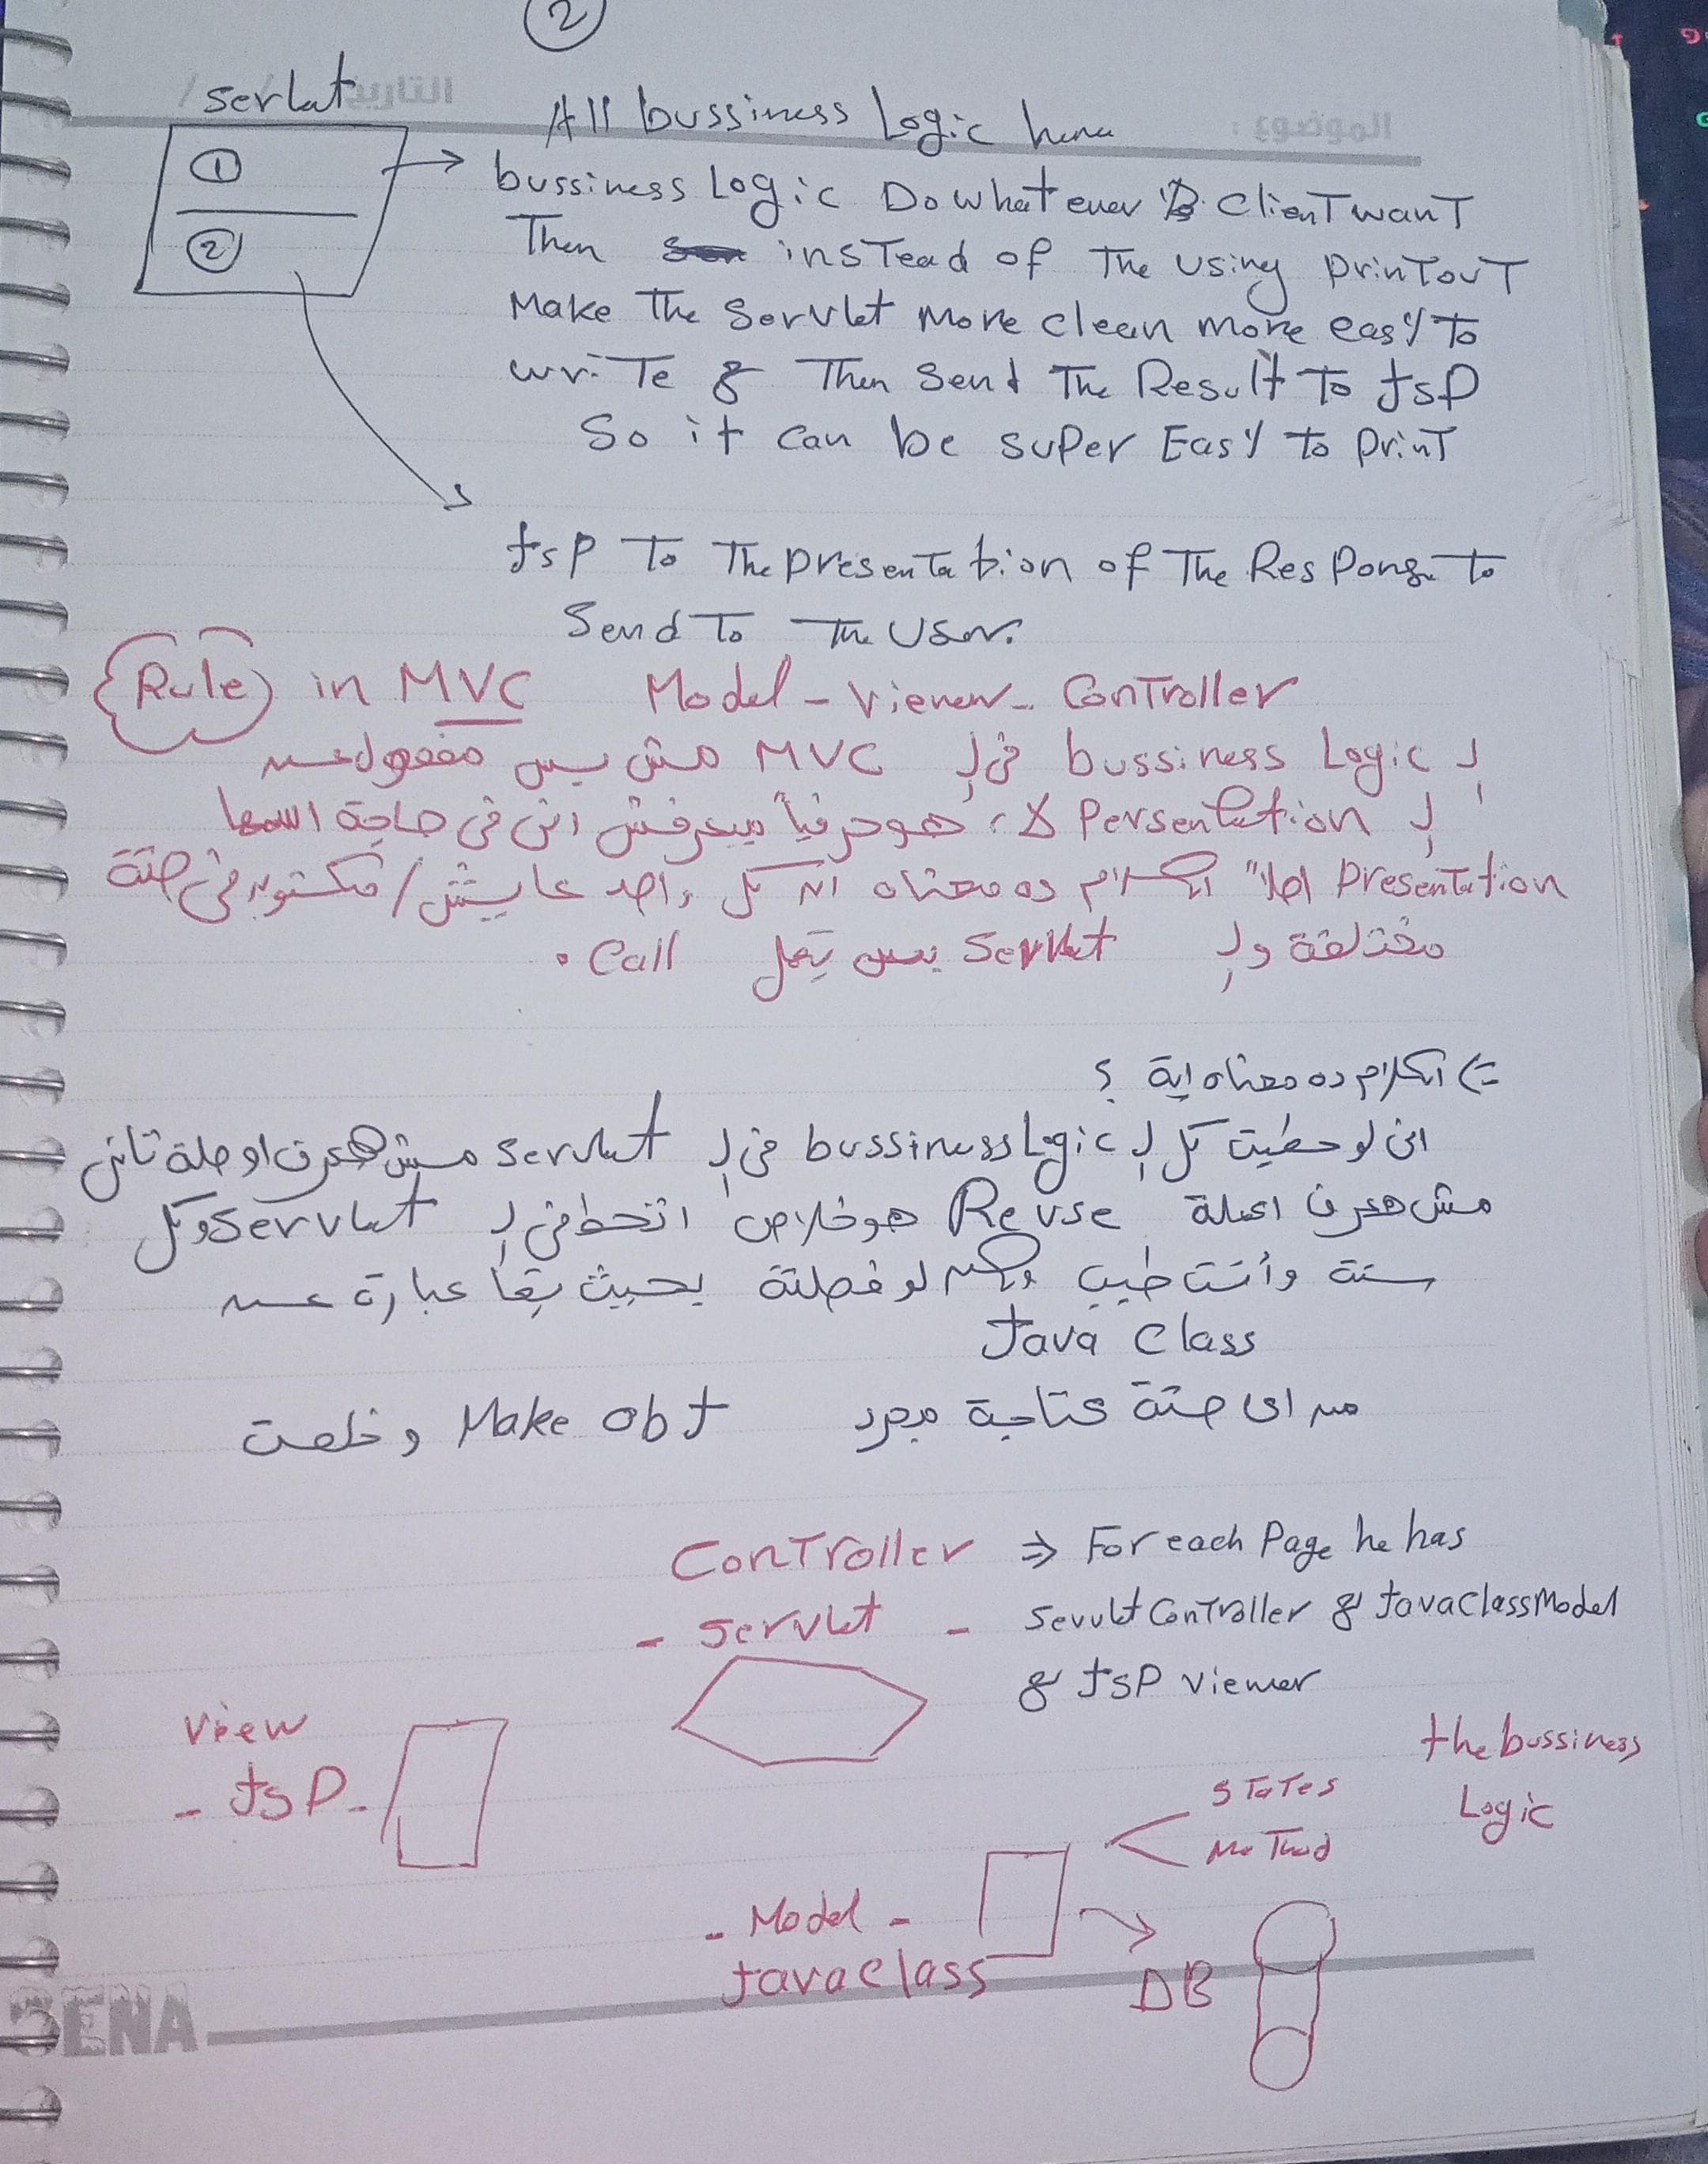 2
التاريخ / /
الموضوع :
serlat
All bussiness Logic here
1
2
bussiness Logic Do what ever Client want
Then instead of The using printout
Make The Servlet More clean more easy To
write & Then Send The Result To JSP
So it can be super Easy To print
JSP To The presentation of The Response To
Send To The User.
Rule in MVC Model - Viewer - Controller
ال bussiness Logic في ال MVC مش بس مفصول عن
ال Persentation لا، هو حرفياً ميعرفش ان في حاجة اسمها
Presentation اصلا" الكلام ده معناه ان كل واحد عايش/مكتوب في حتة
مختلفة و ال Servlet بس يعمل Call .
=> الكلام ده معناه اية ؟
اني لو حطيت كل ال bussiness Logic في ال servlet مش هعرف اوصلة تاني
مش هعرف اعملة Reuse هو خلاص اتحط في ال servlet وكل
سنة وأنت طيب ولكن لو فصلتة بحيث يبقا عبارة عن
Java Class
من اى حتة محتاجة مجرد Make obJ وخلصت
Controller => For each Page he has
- Servlet - Sevult Controller & Java Class Model
& JSP viewer
View
- JSP -
the bussiness
Logic
States
Method
- Model -
Java Class
DB
SENA